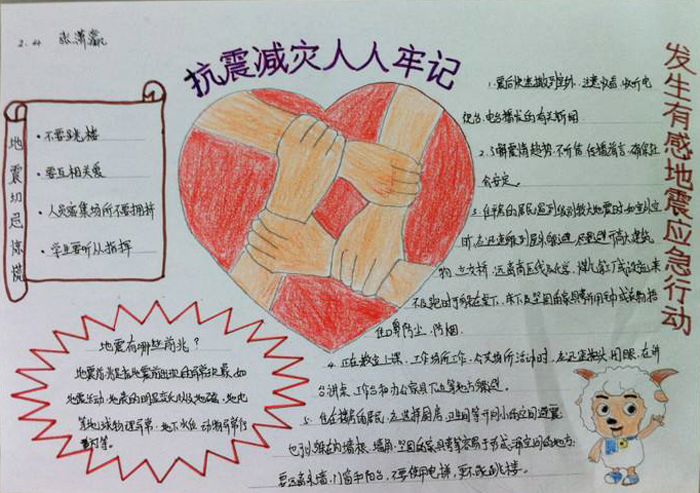 2.4 张潇赢
抗震减灾人人牢记
发生有感地震应急行动
地震切忌惊慌
·不要跳楼
·要互相关爱
·人员密集场所不要拥挤
·学生要听从指挥
地震有哪些前兆?
地震前兆是指地震前出现的异常现象,如
地震活动、地表的明显变化以及地磁、地电
等地球物理异常、地下水位、动物异常行
1.震后快速撤到室外,注意收看、收听电
视台、电台播发的有关新闻
2.了解震情趋势,不听信、传播谣言,确保社
会安定。
3.住平房的居民遇到级别较大地震时,如室外空
旷,应迅速跑到屋外躲避,尽量避开高大建筑
物、立交桥,远离高压线及化学、煤气等工厂或设施;来
不及跑时可躲在桌下、床下及坚固的家具旁,并用毛巾或衣物捂
住口鼻防尘、防烟。
4.正在教室上课、工作场所工作、公共场所活动时,应迅速抱头、闭眼,在讲
台、课桌、工作台和办公家具下边等地方躲避。
5.住在楼房的居民,应选择厨房、卫生间等开间小的空间避震;
也可以躲在内墙根、墙角、坚固的家具旁等容易于形成三角空间的地方;
要远离外墙、门窗和阳台,不要使用电梯,更不能跳楼。